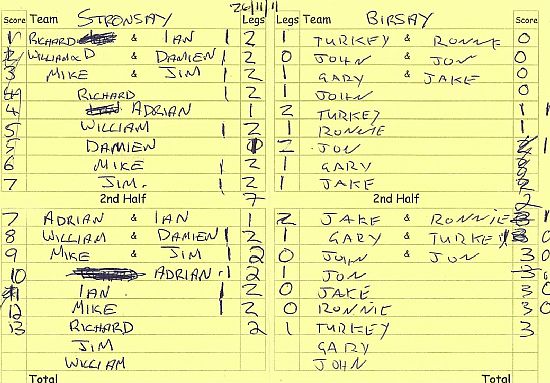 26/11/11
Score Team STRONSAY Legs Legs Team BIRSAY Score
1 RICHARD & IAN 1 2 1 TURKEY & RONNIE 0
2 WILLIAM & DAMIEN 1 2 0 JOHN & JON 0
3 MIKE & JIM 1 2 1 GARY & JAKE 0
4 RICHARD 1 2 1 JOHN 0
4 ADRIAN 1 2 TURKEY 1 1
5 WILLIAM 1 2 1 RONNIE 1
5 DAMIEN 2 JON 2 1
6 MIKE 1 2 1 GARY 2
7 JIM. 1 2 1 JAKE 2
2nd Half 7 2nd Half 2
7 ADRIAN & IAN 1 2 JAKE & RONNIE 3 1
8 WILLIAM & DAMIEN 1 2 1 GARY & TURKEY 3 0
9 MIKE & JIM 1 2 0 JOHN & JON 3 0
10 ADRIAN 1 2 1 JON 3 0
11 IAN 1 2 0 JAKE 3 0
12 MIKE 1 2 0 RONNIE 3 0
13 RICHARD 2 1 TURKEY 3
JIM GARY
WILLIAM JOHN
Total Total